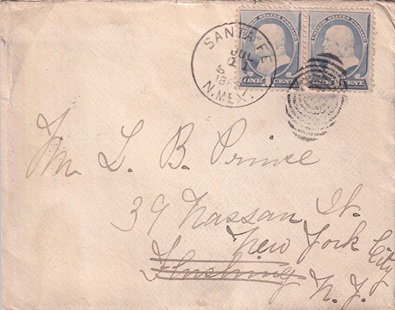 SANTA FE
JUL
N. MEX.
UNITED STATES POSTAGE UNITED STATES POSTAGE
ONE CENT ONE CENT
Mr. L. B. Prince
39 Nassau St.
New York City
Flushing
N. Y.